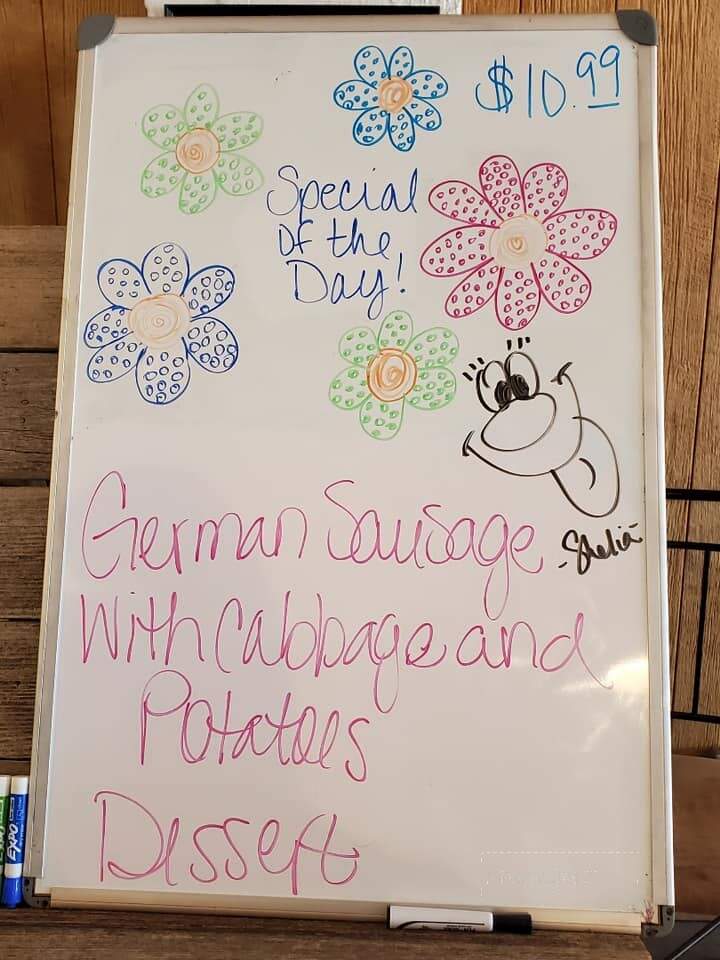 $10.99
Special
Of the
Day!
German Sausage
-Shelia-
With Cabbage and
Potatoes
Dessert
EXPO